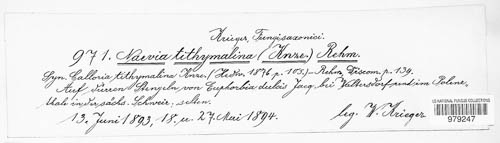 Krieger, Fungi saxonici.
971. Naevia tithymalina (Knze.) Rehm.
Syn. Calloria tithymalina Knze. (Hedw. 1876 p. 103.) Rehm, Discom. p. 139.
Auf dürren Stengeln von Euphorbia dulcis Jacq. bei Waltersdorf und im Polenz-
thale in der sächs. Schweiz, selten.
13. Juni 1893, 18. u. 27. Mai 1894.
leg. W. Krieger
US NATIONAL FUNGUS COLLECTIONS
979247